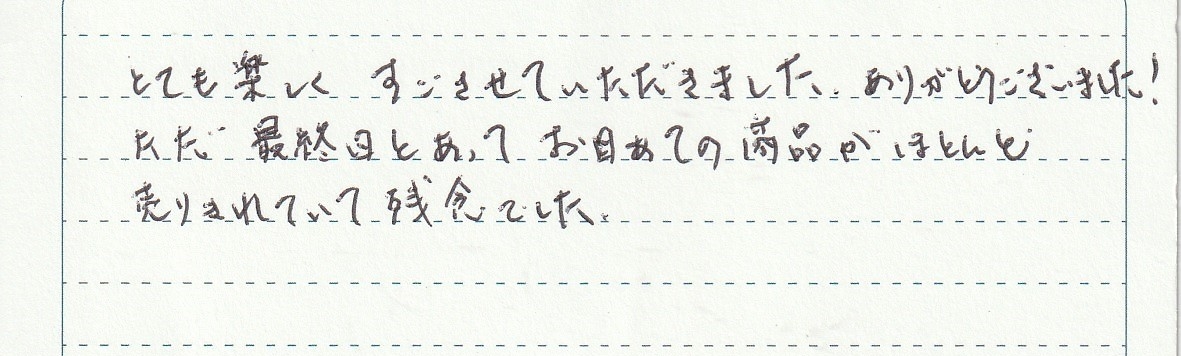 とても楽しく すごさせていただきました。ありがとうございました!
ただ 最終日とあって お目あての 商品が ほとんど
売りきれていて 残念でした。